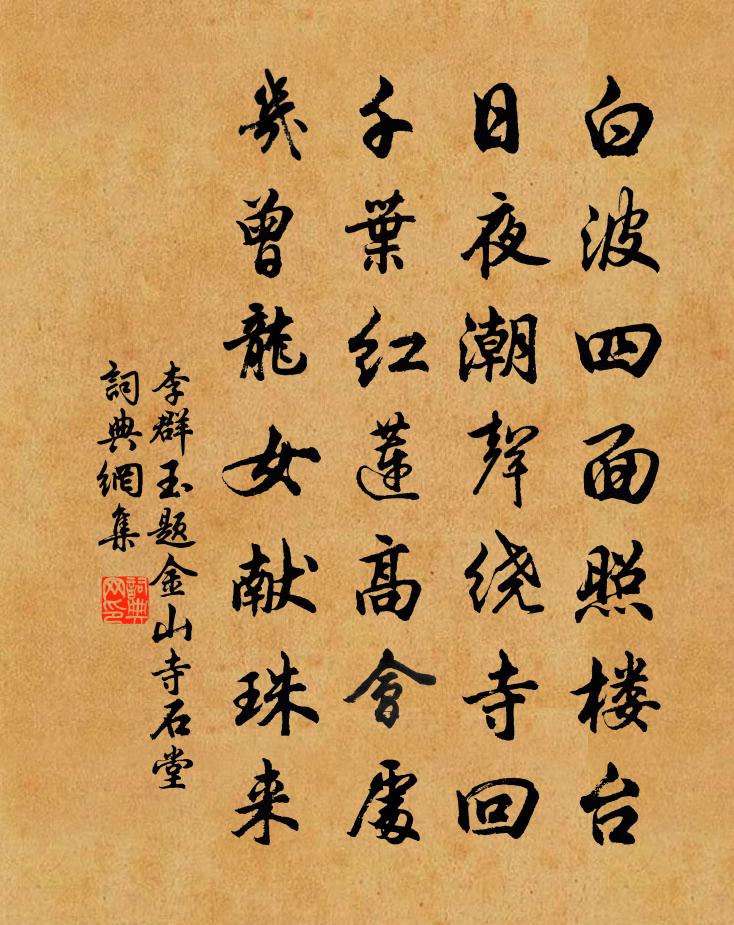 白波四面照楼台
日夜潮聲绕寺回
千葉红蓮高會處
幾曾龍女献珠来
李群玉题金山寺石堂
詞典網集
詞典網印